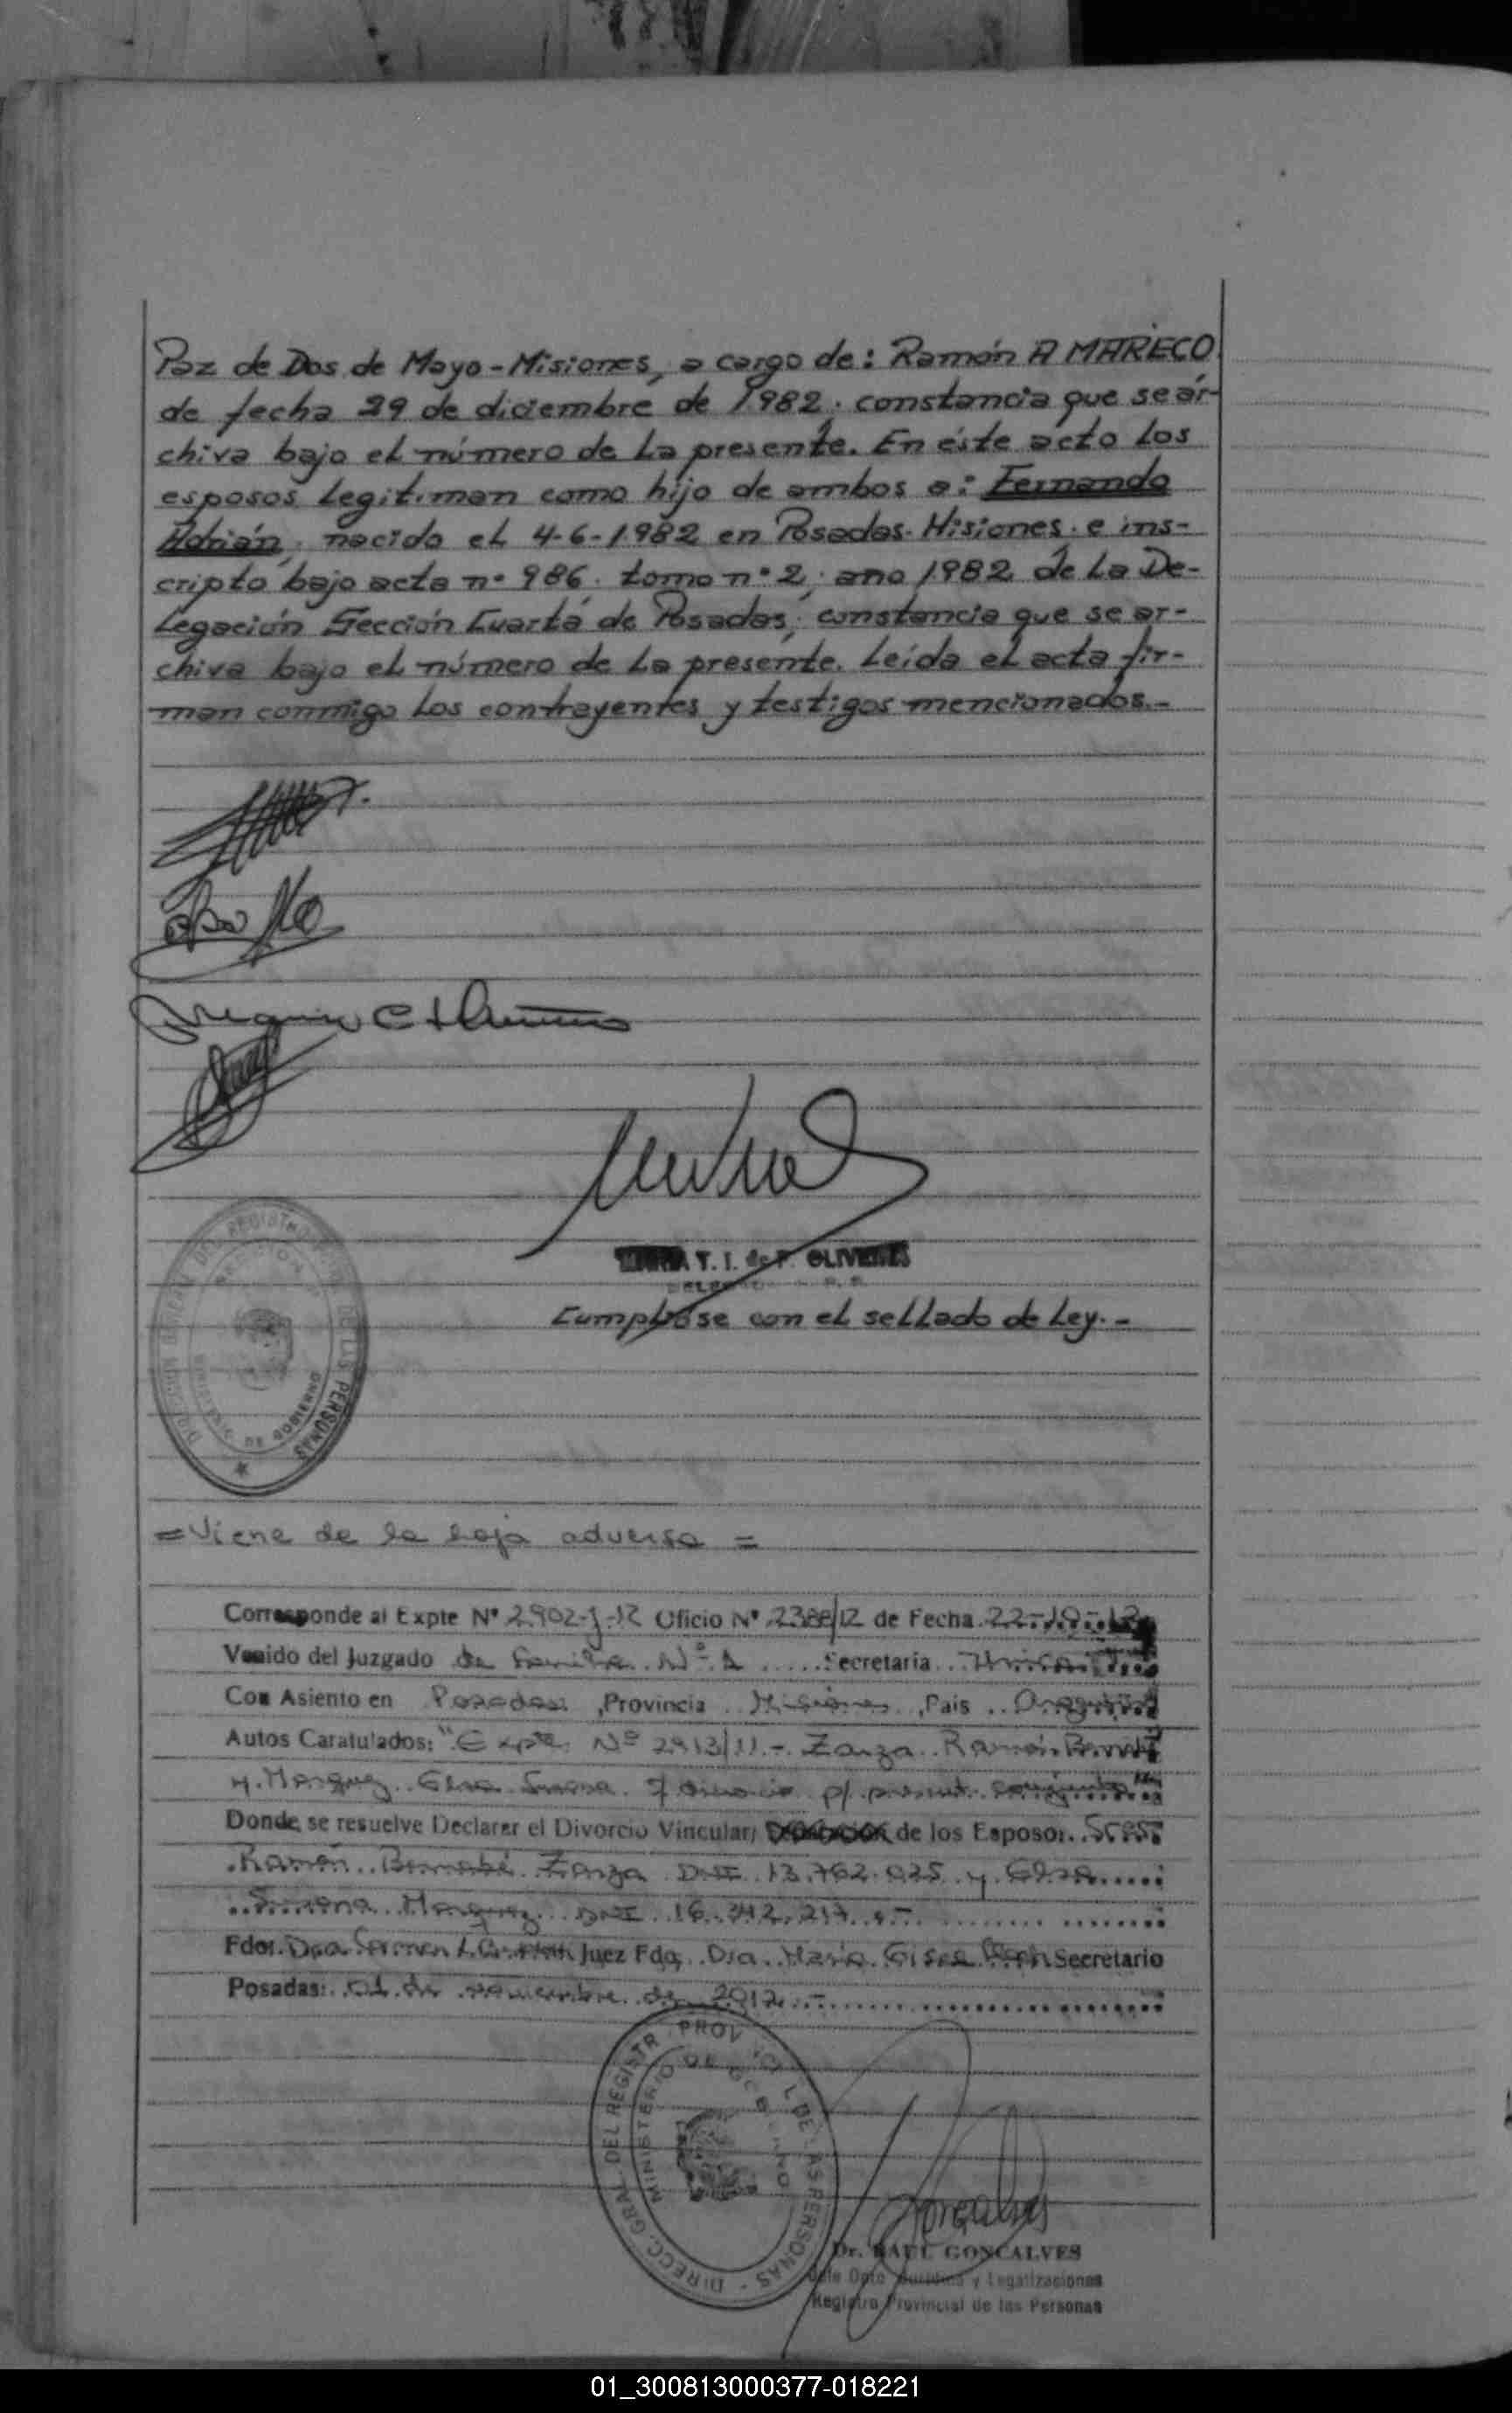 Paz de Dos de Mayo - Misiones, a cargo de: Ramón A MARECO.
de fecha 29 de diciembre de 1982. constancia que se ar-
chiva bajo el número de la presente. En éste acto los
esposos legitiman como hijo de ambos a: Fernando
Adrián, nacido el 4-6-1982 en Posadas - Misiones. e ins-
cripto bajo acta nº 986. tomo nº 2. año 1982 de la De-
legación Sección Cuarta de Posadas, constancia que se ar-
chiva bajo el número de la presente. Leída el acta fir-
man conmigo los contrayentes y testigos mencionados.-
T. I. de P. OLIVERES
Cumplase con el sellado de Ley.-
DE LAS PERSONAS
MINISTERIO DE GOBIERNO
= Viene de la hoja adversa =
Corresponde al Expte Nº 2902-J-12 Oficio Nº 2388/12 de Fecha 22-10-12
Venido del Juzgado de Familia Nº 1 Secretaria Unica
Con Asiento en Posadas, Provincia Misiones, Pais Argentina
Autos Caratulados: "Expte. Nº 2913/11.- Zarza Ramón Bernabé
y Marquez Elsa Susana s/ divorcio p/ present. conjunta"
Donde se resuelve Declarar el Divorcio Vincular/ de los Esposos. Sres.
Ramón Bernabé Zarza DNI 13.762.025 y Elsa
Susana Marquez DNI 16.342.217.-
Fdo: Dra. Carmen Juez Fdo. Dra. María Secretario
Posadas: 01 de noviembre de 2012.-
DIRECC. GRAL. DEL REGISTR PROV DE LAS PERSONAS
MINISTERIO DE GOBIERNO
Dr. RAUL GONCALVES
Jefe Dpto Juridico y Legatizaciones
Registro Provincial de las Personas
01_300813000377-018221